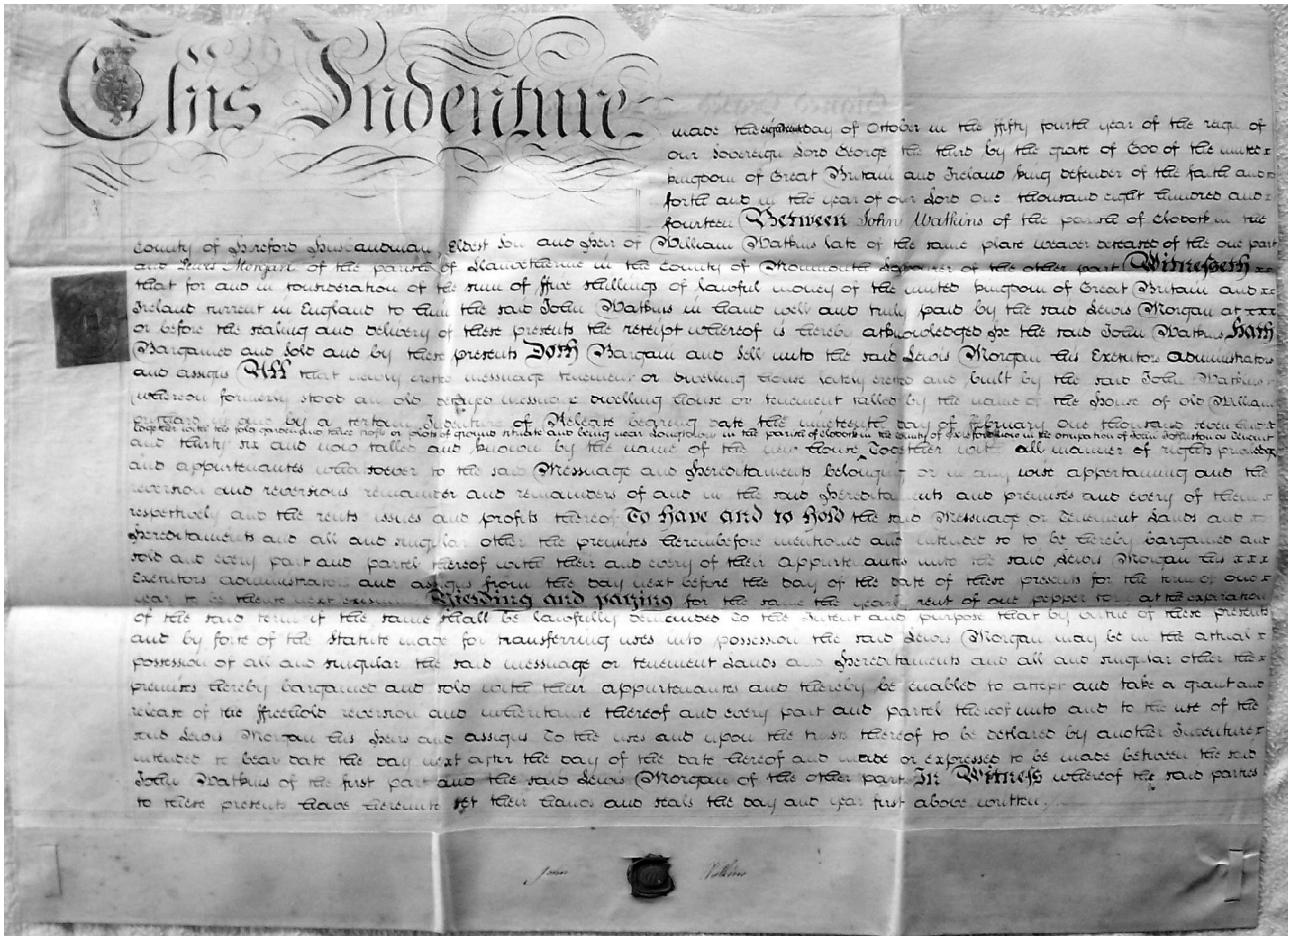 This Indenture
made the day of October in the fifty fourth year of the reign of
our Sovereign Lord George the third by the grace of God of the united
kingdom of Great Britain and Ireland king defender of the faith and
forth and in the year of our Lord One thousand eight hundred and
fourteen Between John Watkins of the parish of Clodock in the
County of Hereford Husbandman Eldest Son and Heir of William Watkins late of the same place weaver deceased of the one part
and Lewis Morgan of the parish of in the County of Monmouth of the other part Witnesseth
that for and in consideration of the sum of five shillings of lawful money of the united kingdom of Great Britain and
Ireland current in England to him the said John Watkins in hand well and truly paid by the said Lewis Morgan at xxx
or before the sealing and delivery of these presents the receipt whereof is hereby acknowledged He the said John Watkins Hath
Bargained and sold and by these presents Doth Bargain and sell unto the said Lewis Morgan his Executors administrators
and assigns All that newly messuage tenement or dwelling House lately and built by the said John Watkins
whereon formerly stood an old messuage dwelling house or tenement called by the name of the House of old William
by a certain Indenture of Release bearing date the day of February One thousand seven
together with the garden and plots of ground situate and being near in the parish of Clodock in the County of in the occupation of
and thirty six and now called and known by the name of the new House Together with all manner of rights privileges
and appurtenances whatsoever to the said Messuage and Hereditaments belonging or in any wise appertaining and the
reversion and reversions remainder and remainders of and in the said Hereditaments and premises and every of them
respectively and the rents issues and profits thereof To have and to hold the said Messuage or Tenement Lands and
Hereditaments and all and singular other the premises hereinbefore mentioned and intended so to be hereby bargained and
sold and every part and parcel thereof with their and every of their appurtenances unto the said Lewis Morgan his xxx
Executors administrators and assigns from the day next before the day of the date of these presents for the term of one x
year to be thence next ensuing Yielding and paying for the same the yearly rent of one pepper corn at the expiration
of the said term if the same shall be lawfully demanded To the Intent and purpose that by virtue of these presents
and by force of the Statute made for transferring uses into possession the said Lewis Morgan may be in the actual x
possession of all and singular the said messuage or tenement Lands and Hereditaments and all and singular other the x
premises hereby bargained and sold with their appurtenances and thereby be enabled to accept and take a grant and
release of the freehold reversion and inheritance thereof and every part and parcel thereof unto and to the use of the
said Lewis Morgan his Heirs and assigns To the uses and upon the trusts thereof to be declared by another Indenture x
intended to bear date the day next after the day of the date hereof and made or expressed to be made between the said
John Watkins of the first part and the said Lewis Morgan of the other part In Witness whereof the said parties
to these presents have hereunto set their hands and seals the day and year first above written
John Watkins